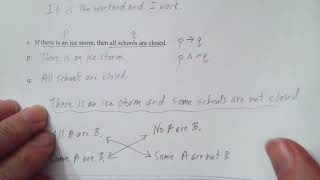 It is the weekend and I work.
p q
c. If there is an ice storm, then all schools are closed. p → q
p: There is an ice storm. p ∧ ~q
q: All schools are closed.
There is an ice storm and some schools are not closed
All A are B. No A are B.
Some A are B. Some A are not B